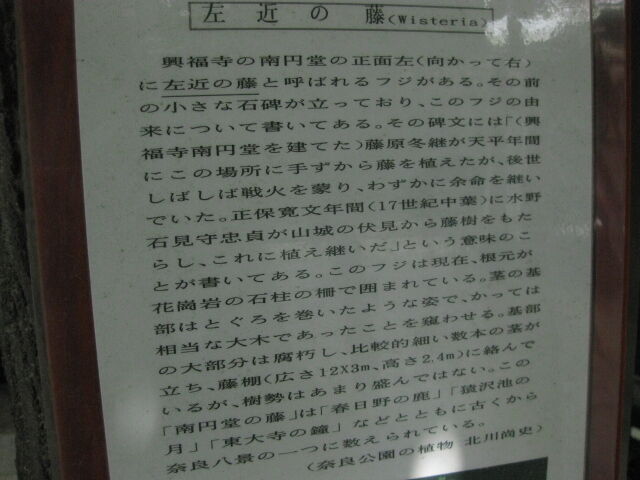 左近の藤(Wisteria)
興福寺の南円堂の正面左(向かって右)
に左近の藤と呼ばれるフジがある。その前
の小さな石碑が立っており、このフジの由
来について書いてある。その碑文には「(興
福寺南円堂を建てた)藤原冬継が天平年間
にこの場所に手ずから藤を植えたが、後世
しばしば戦火を蒙り、わずかに余命を継い
でいた。正保寛文年間(17世紀中葉)に水野
石見守忠貞が山城の伏見から藤樹をもた
らし、これに植え継いだ」という意味のこ
とが書いてある。このフジは現在、根元が
花崗岩の石柱の柵で囲まれている。茎の基
部はとぐろを巻いたような姿で、かっては
相当な大木であったことを窺わせる。基部
の大部分は腐朽し、比較的細い数本の茎が
立ち、藤棚(広さ12X3m、高さ2.4m)に絡んで
いるが、樹勢はあまり盛んではない。この
「南円堂の藤」は「春日野の鹿」「猿沢池の
月」「東大寺の鐘」などとともに古くから
奈良八景の一つに数えられている。
(奈良公園の植物 北川尚史)